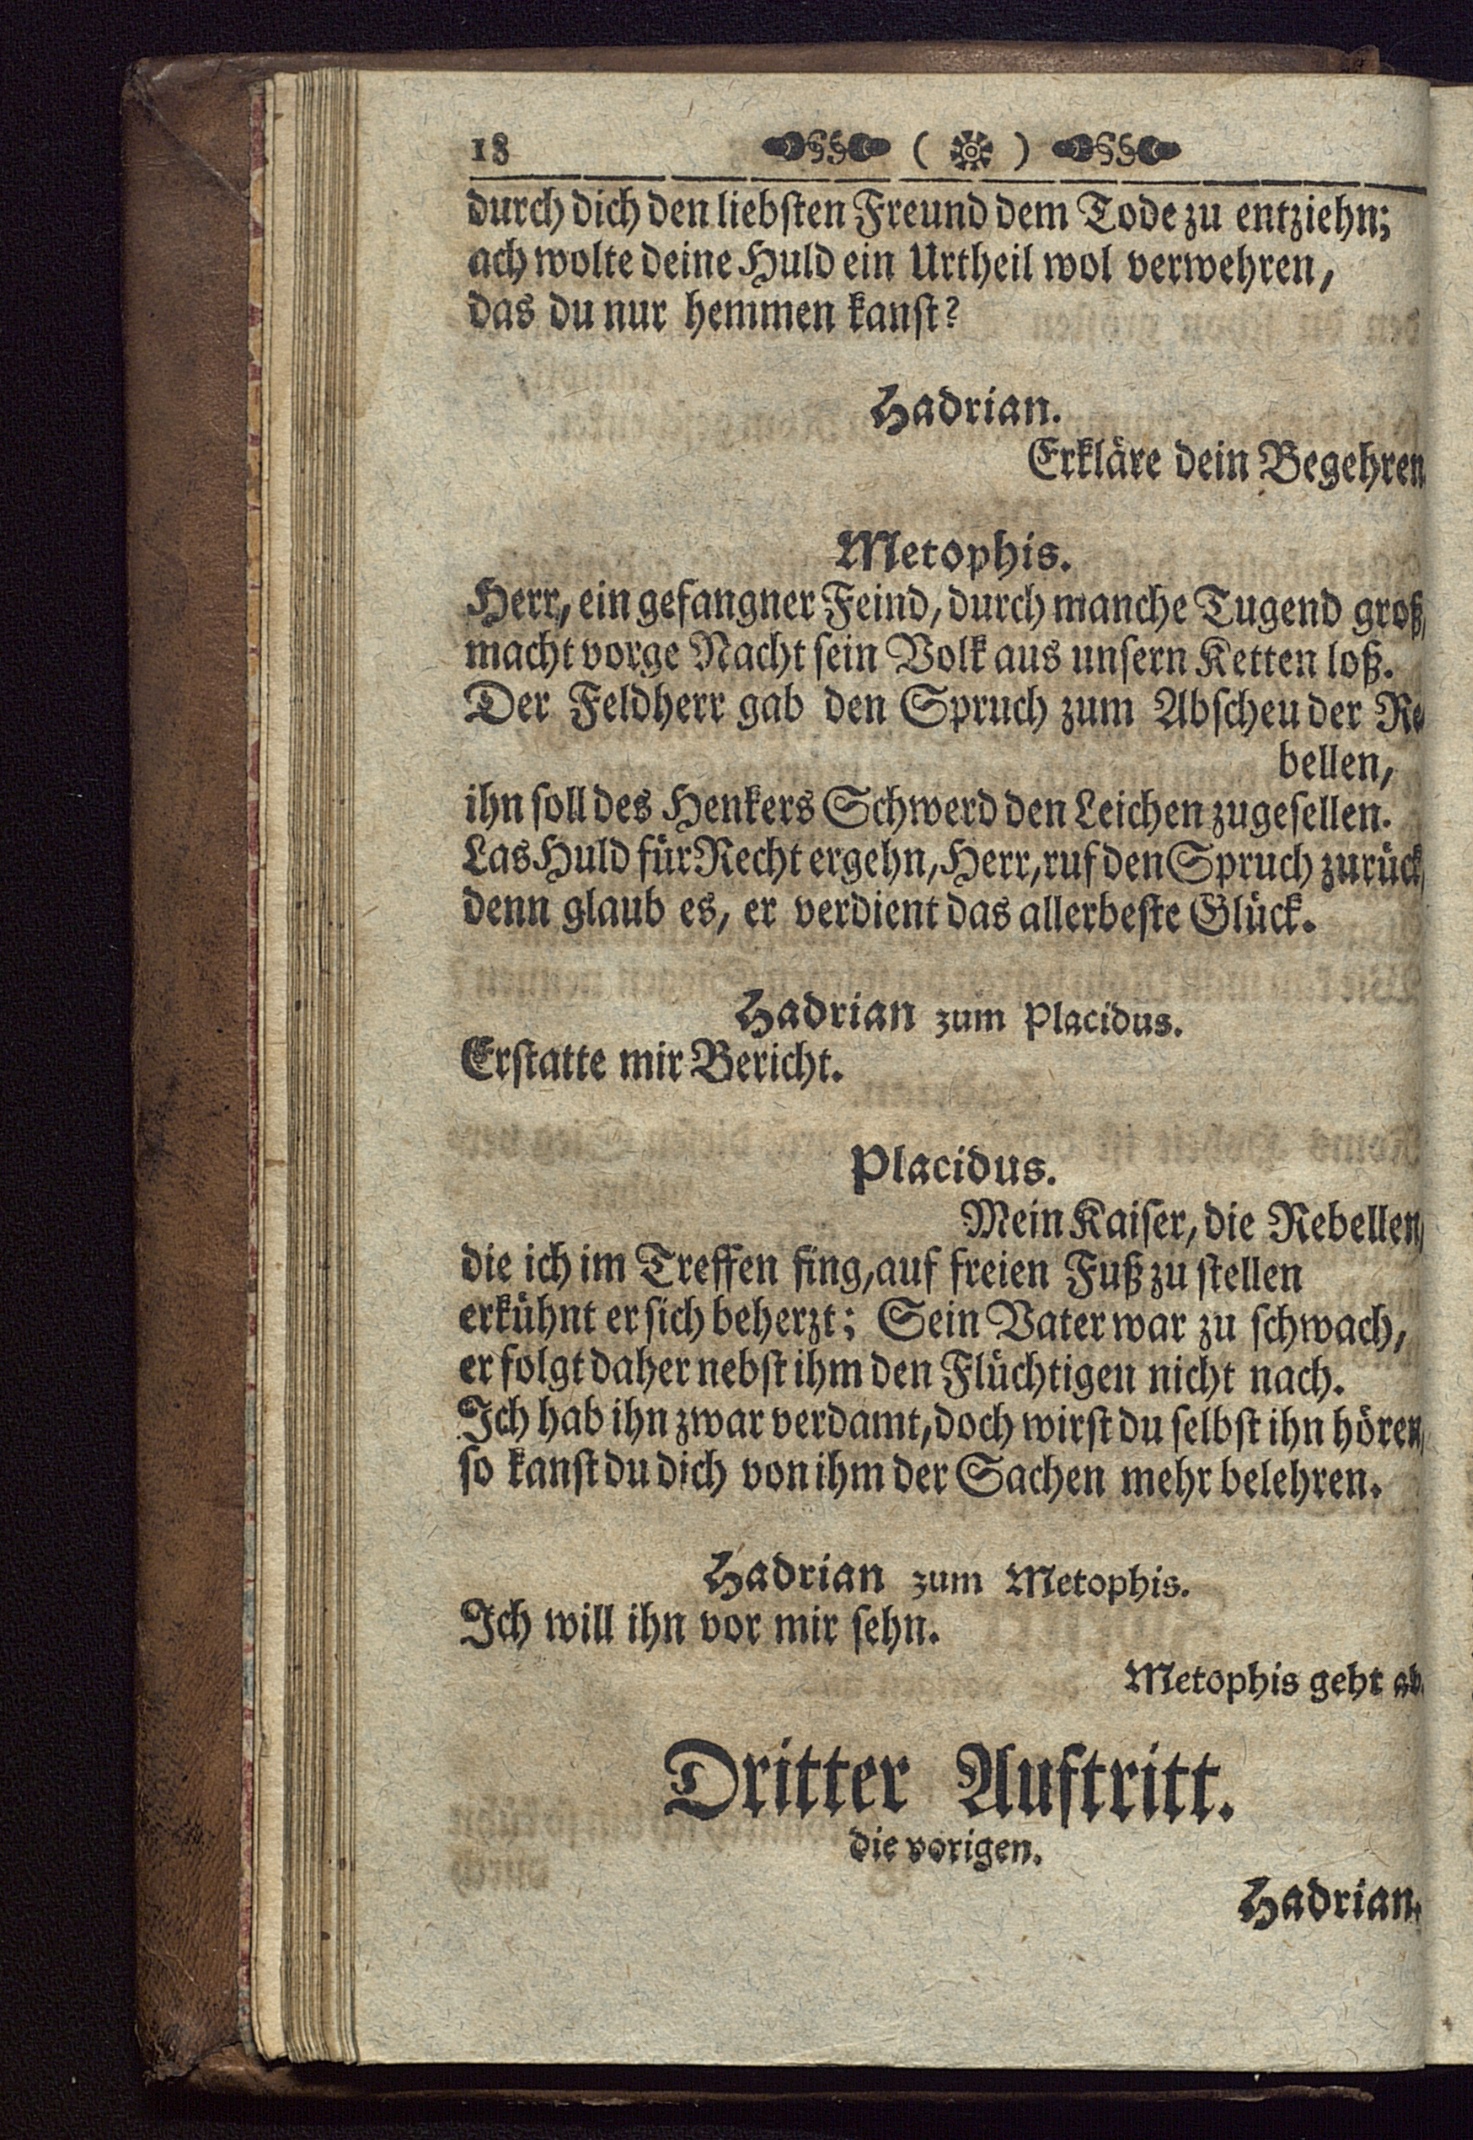 18 ( )
durch dich den liebsten Freund dem Tode zu entziehn;
ach wolte deine Huld ein Urtheil wol verwehren,
das du nur hemmen kanst?
Hadrian.
Erkläre dein Begehren
Metophis.
Herr, ein gefangner Feind, durch manche Tugend groß,
macht vorge Nacht sein Volk aus unsern Ketten loß.
Der Feldherr gab den Spruch zum Abscheu der Re
bellen,
ihn soll des Henkers Schwerd den Leichen zugesellen.
Las Huld für Recht ergehn, Herr, ruf den Spruch zurück,
denn glaub es, er verdient das allerbeste Glück.
Hadrian zum Placidus.
Erstatte mir Bericht.
Placidus.
Mein Kaiser, die Rebellen,
die ich im Treffen fing, auf freien Fuß zu stellen
erkühnt er sich beherzt; Sein Vater war zu schwach,
er folgt daher nebst ihm den Flüchtigen nicht nach.
Ich hab ihn zwar verdamt, doch wirst du selbst ihn hören,
so kanst du dich von ihm der Sachen mehr belehren.
Hadrian zum Metophis.
Ich will ihn vor mir sehn.
Metophis geht ab.
Dritter Auftritt.
die vorigen.
Hadrian.